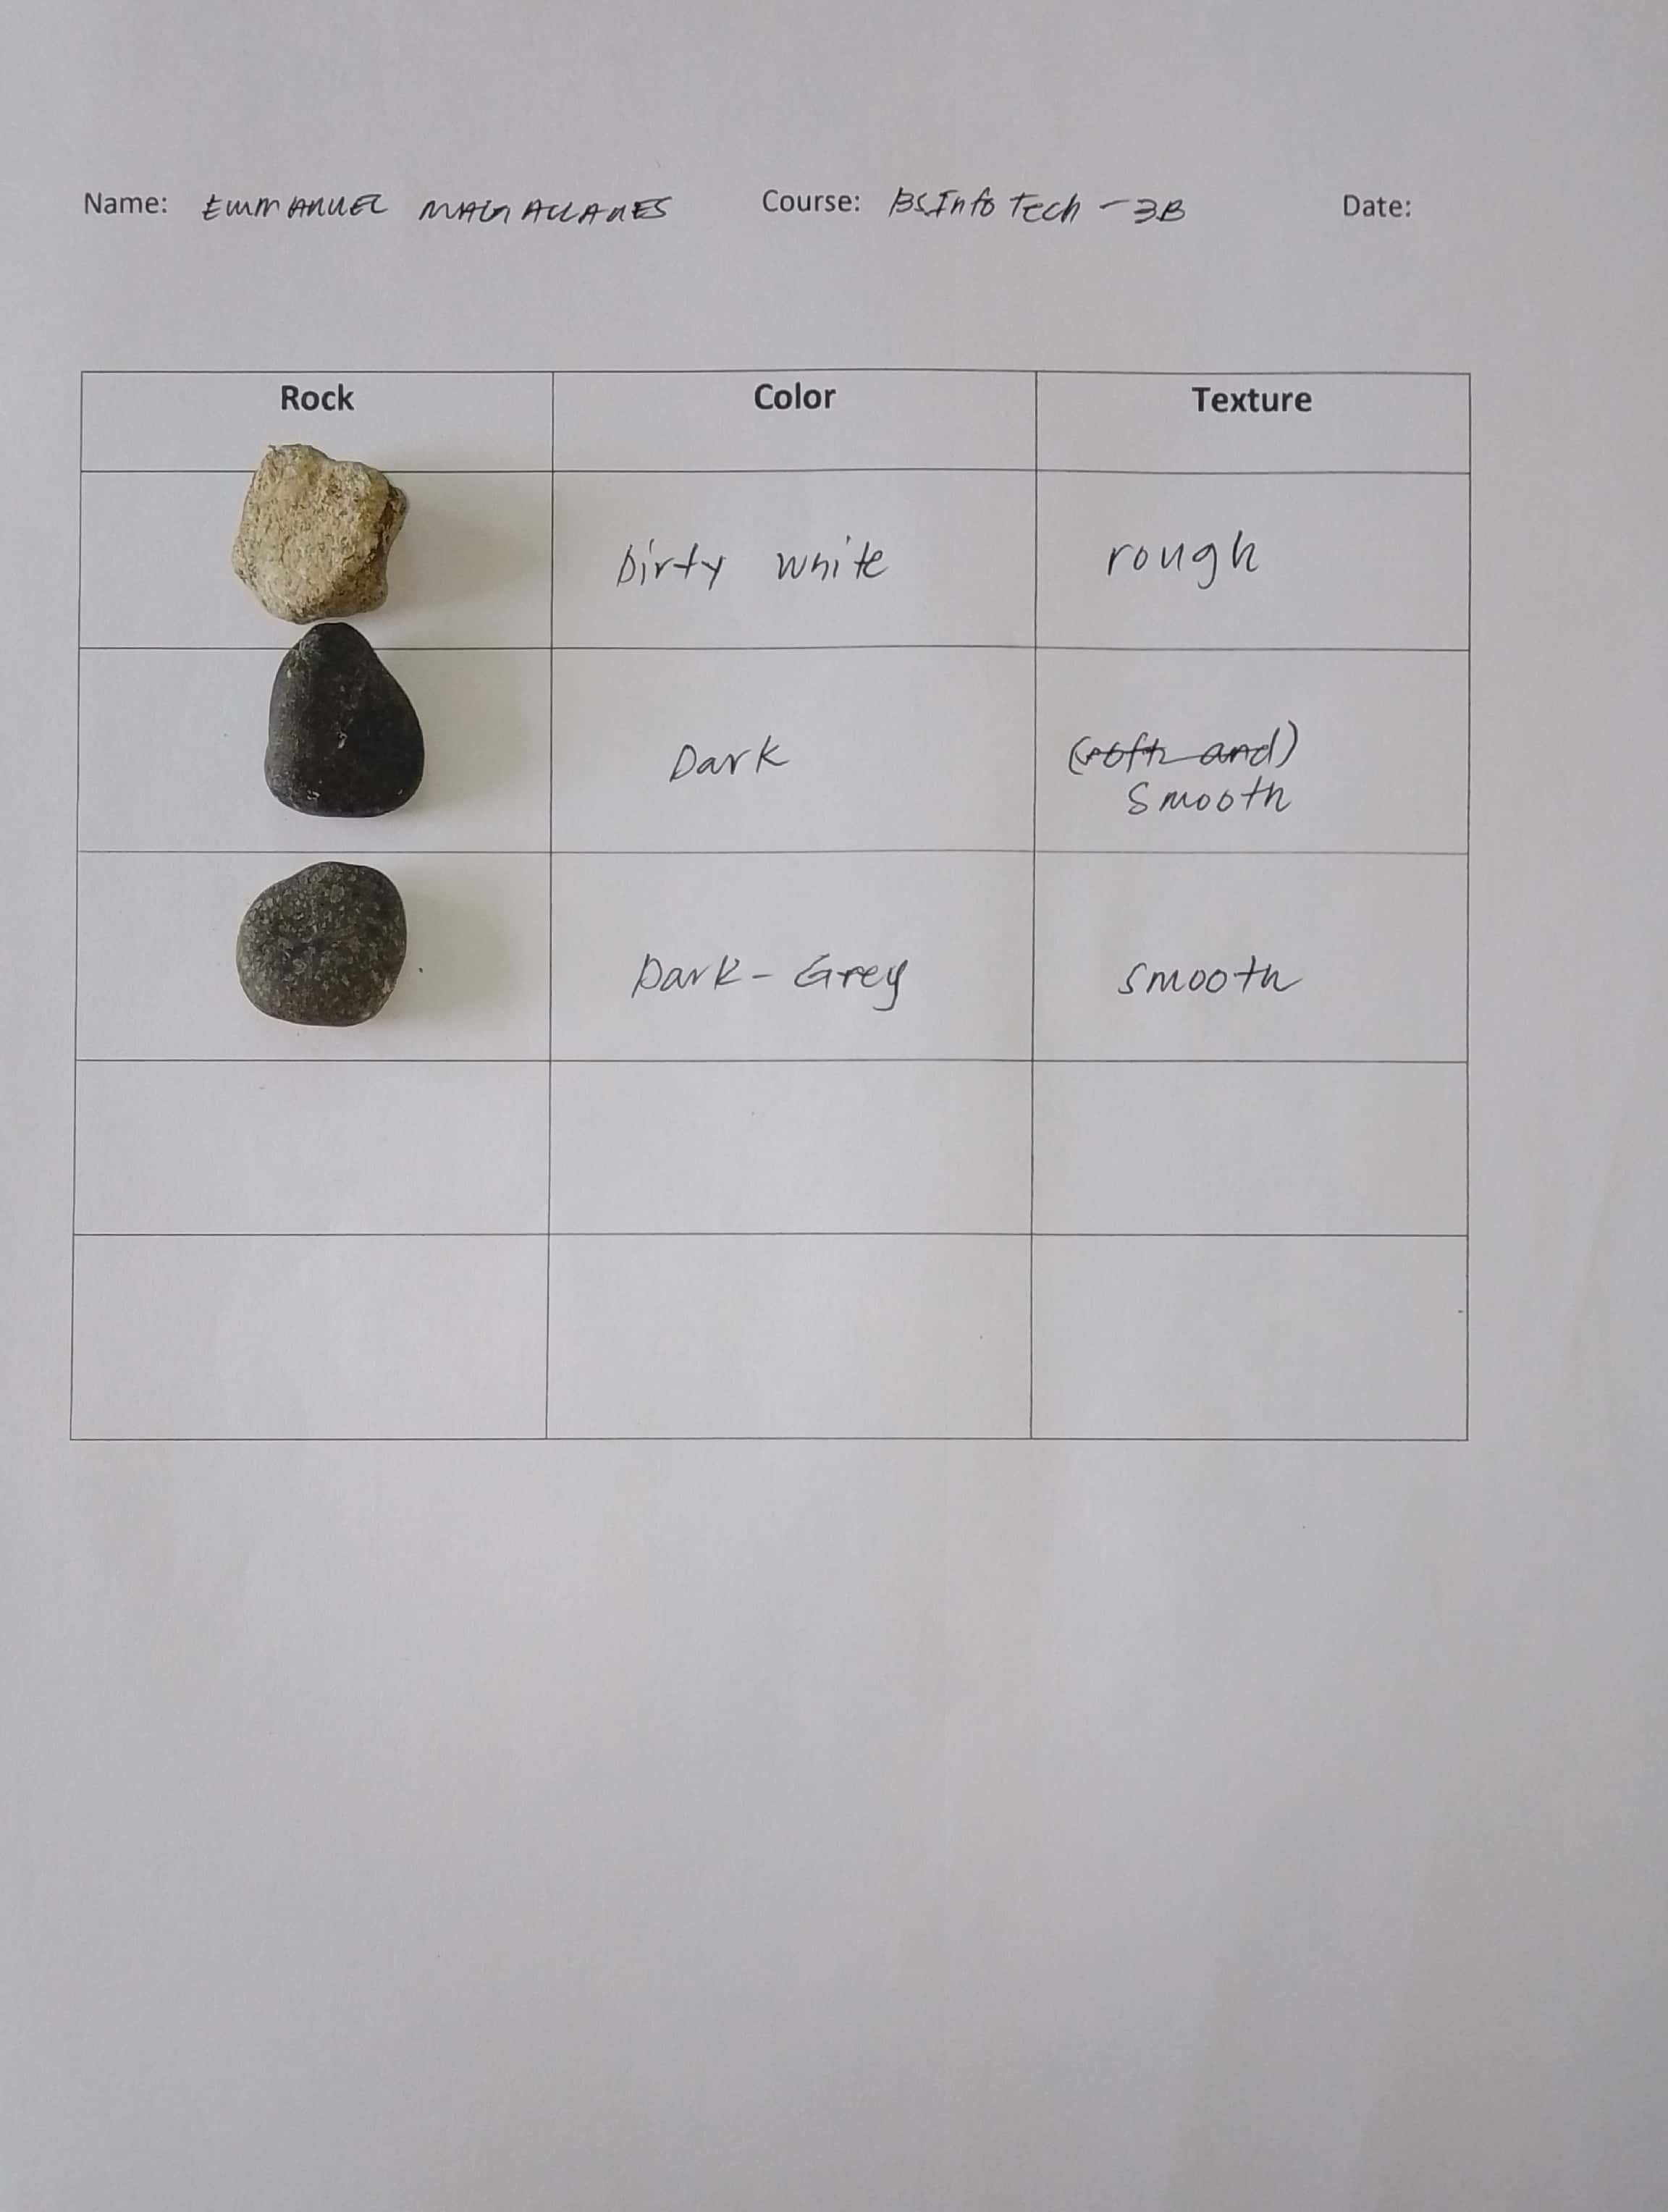 Name: EMMANUEL MAGALLANES Course: BSInfo Tech - 3B Date:
Rock Color Texture
Dirty white rough
Dark (soft and)
smooth
Dark - Grey smooth